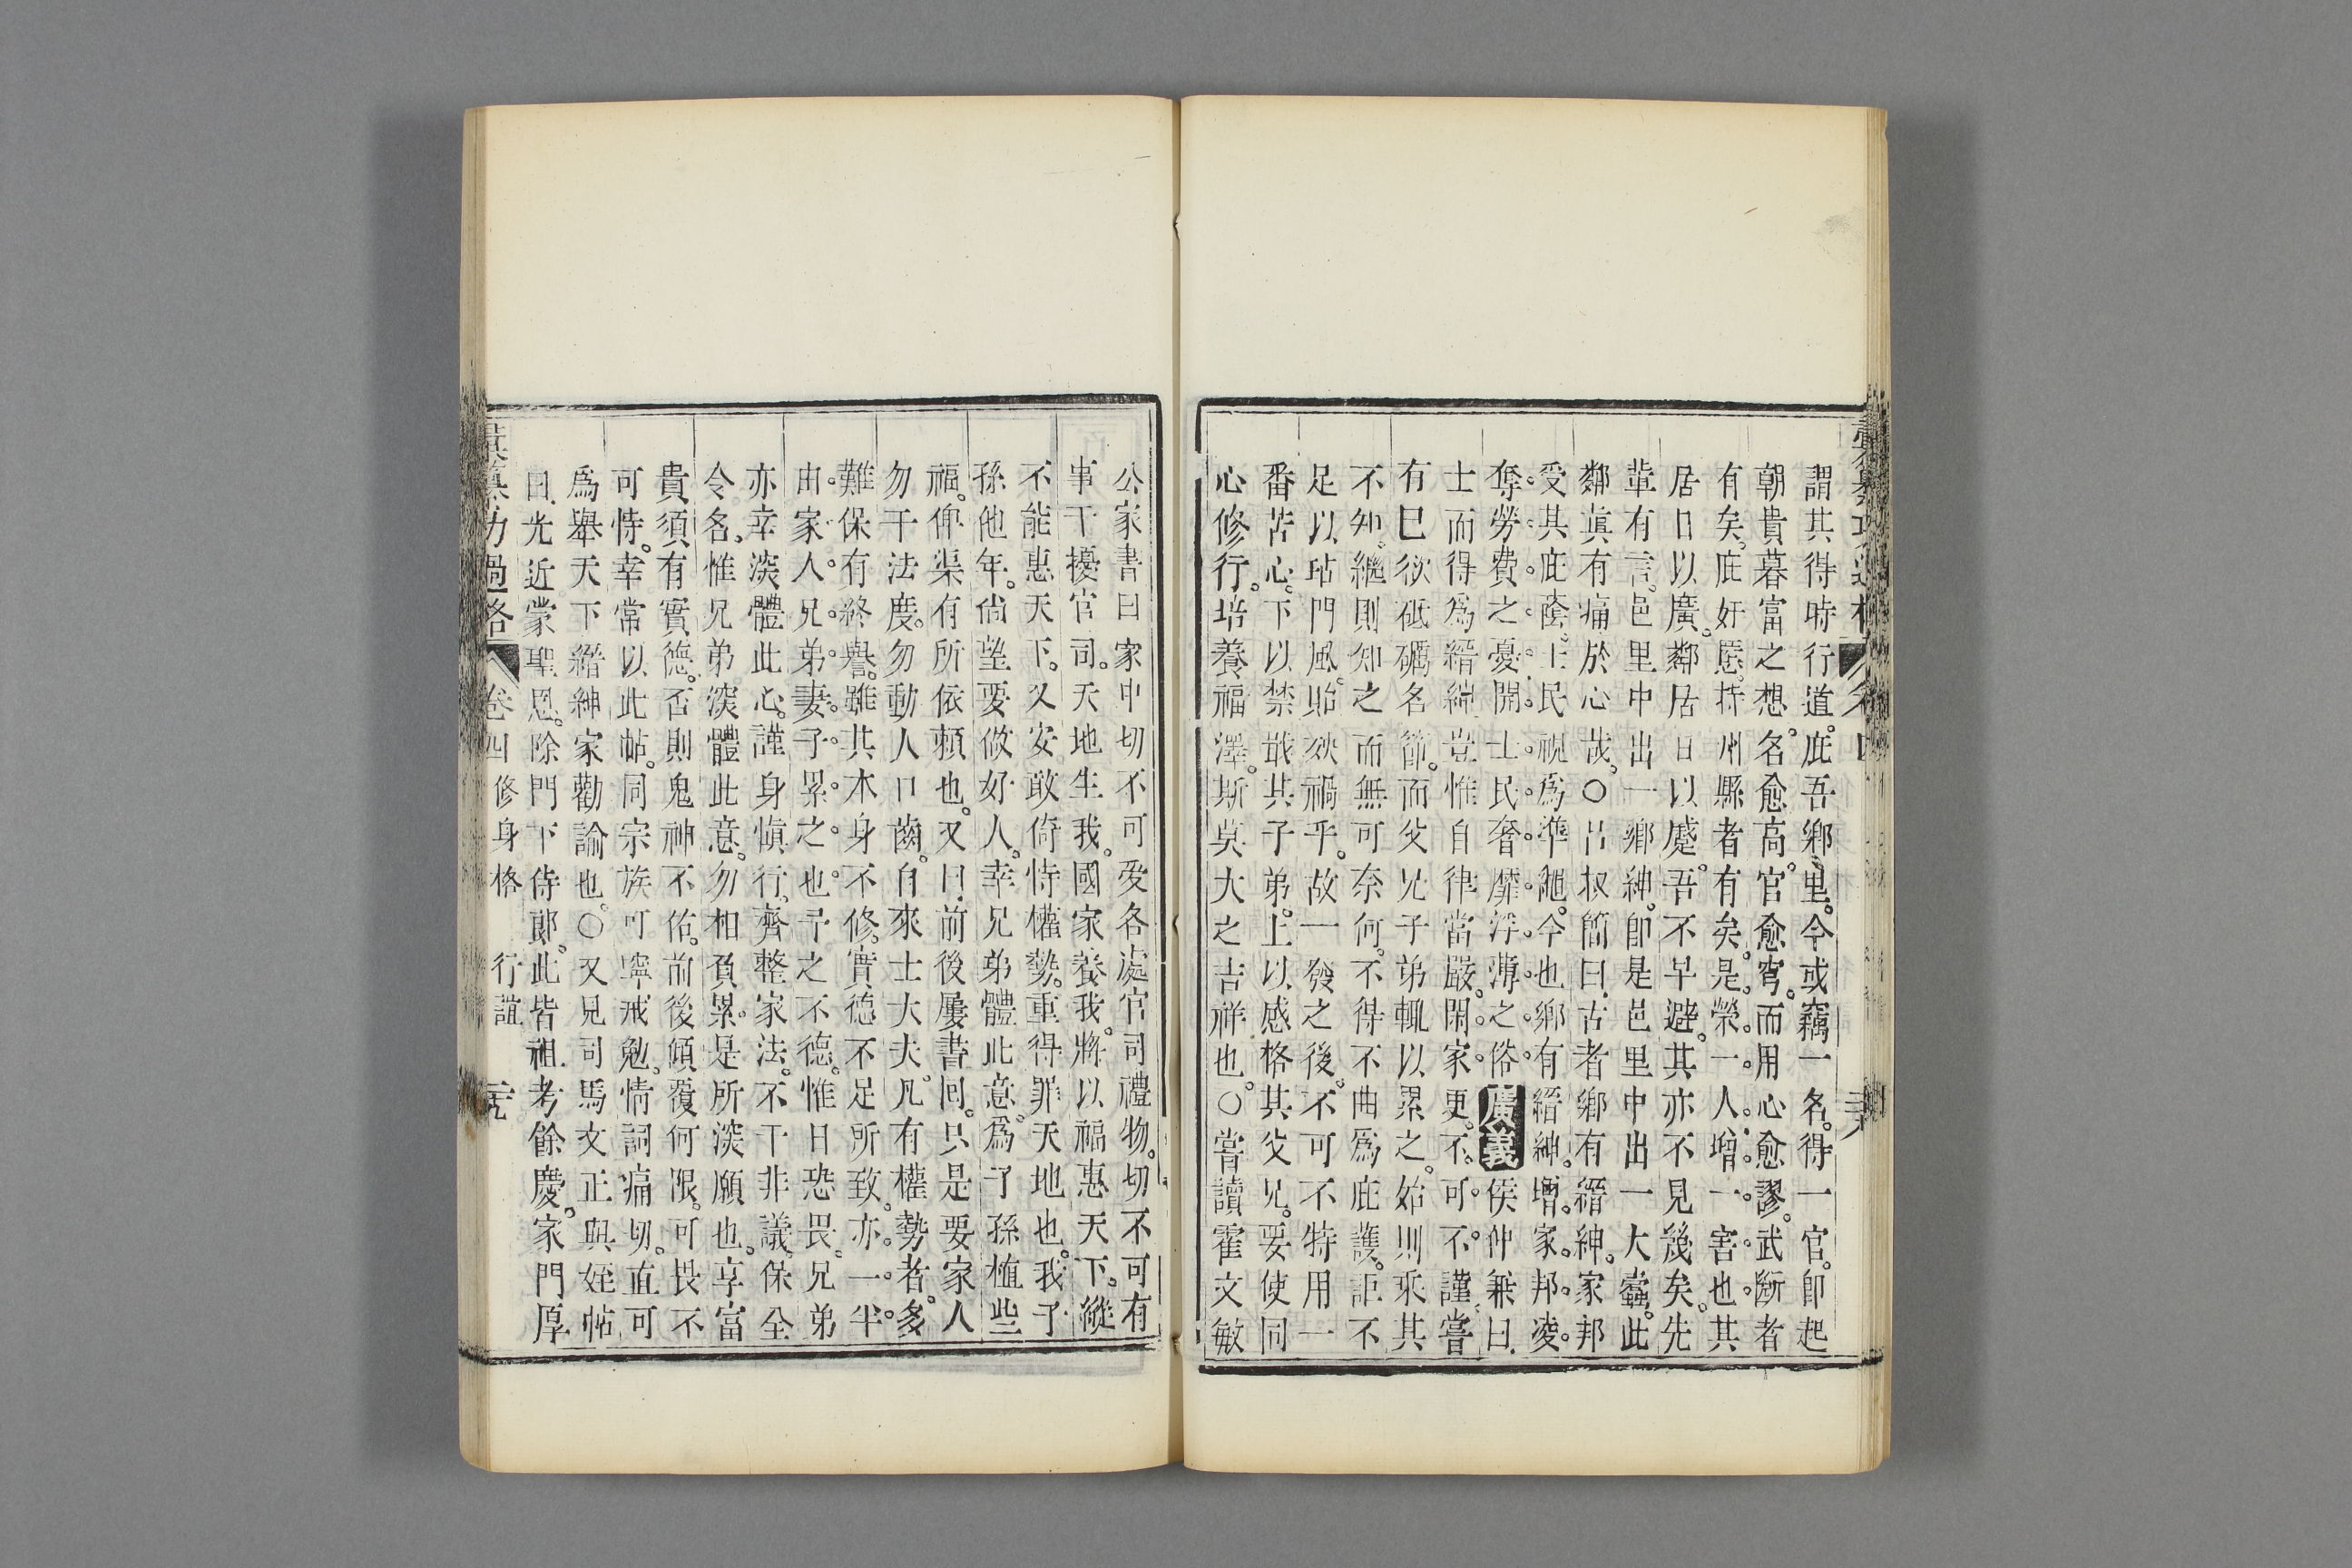 謂其得時行道。庇吾鄉里。今或竊一名。得一官。卽起
朝貴暮富之想。名愈高。官愈穹。而用心愈謬。武斷者
有矣。庇奸慝。持州縣者有矣。是榮一人。增一害也。其
居日以廣。鄰居日以蹙。吾不早避。其亦不見幾矣。先
輩有言。邑里中出一鄉紳。卽是邑里中出一大蠹。此
鄰眞有痛於心哉。○呂叔簡曰。古者鄉有縉紳。家邦
受其庇蔭。士民視爲準繩。今也鄉有縉紳。增家邦凌
奪勞費之憂。開士民奢靡浮薄之俗。廣義侯仲兼曰。
士而得爲縉紳。豈惟自律當嚴。閑家更不可不謹。嘗
有巳欲砥礪名節。而父兄子弟輒以累之。始則乘其
不知。繼則知之而無可奈何。不得不曲爲庇護。詎不
足以玷門風。貽殃禍乎。故一發之後。不可不特用一
番苦心。下以禁戢其子弟。上以感格其父兄。要使同
心修行。培養福澤。斯莫大之吉祥也。○嘗讀霍文敏
公家書曰。家中切不可受各處官司禮物。切不可有
事干擾官司。天地生我。國家養我。將以福惠天下。縱
不能惠天下。又安敢倚恃權勢。重得罪天地也。我子
孫他年。尙望要做好人。幸兄弟體此意。爲子孫植些
福。俾渠有所依賴也。又曰。前後屢書囘。只是要家人
勿干法度。勿動人口齒。自來士大夫。凡有權勢者。多
難保有終譽。雖其本身不修。實德不足所致。亦一半
由家人兄弟妻子累之也。予之不德。惟日恐畏。兄弟
亦幸深體此心。謹身愼行。齊整家法。不干非議。保全
令名。惟兄弟深體此意。勿相負累。是所深願也。享富
貴須有實德。否則鬼神不佑。前後傾覆何限。可畏不
可恃。幸常以此帖。同宗族可寧戒勉。情詞痛切。直可
爲舉天下縉紳家勸諭也。○又見司馬文正與姪帖
曰。光近蒙聖恩。除門下侍郎。此皆祖考餘慶。家門厚
彙纂功過格 卷四修身格 行誼